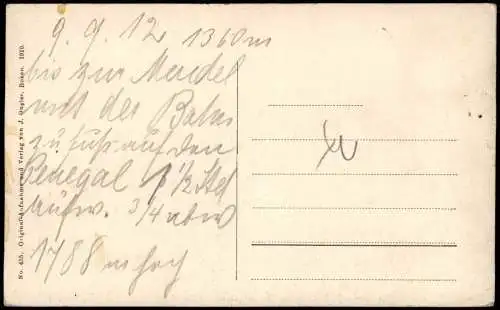 9. 9. 12 1360 m
bis zur Mendel
mit der Bahn
zu fuß auf den
Penegal 1 ½ Std
aufw. 3/4 abw
1788 m hoch
No. 455. Original-Aufnahme und Verlag von J. Gugler, Bozen. 1910.